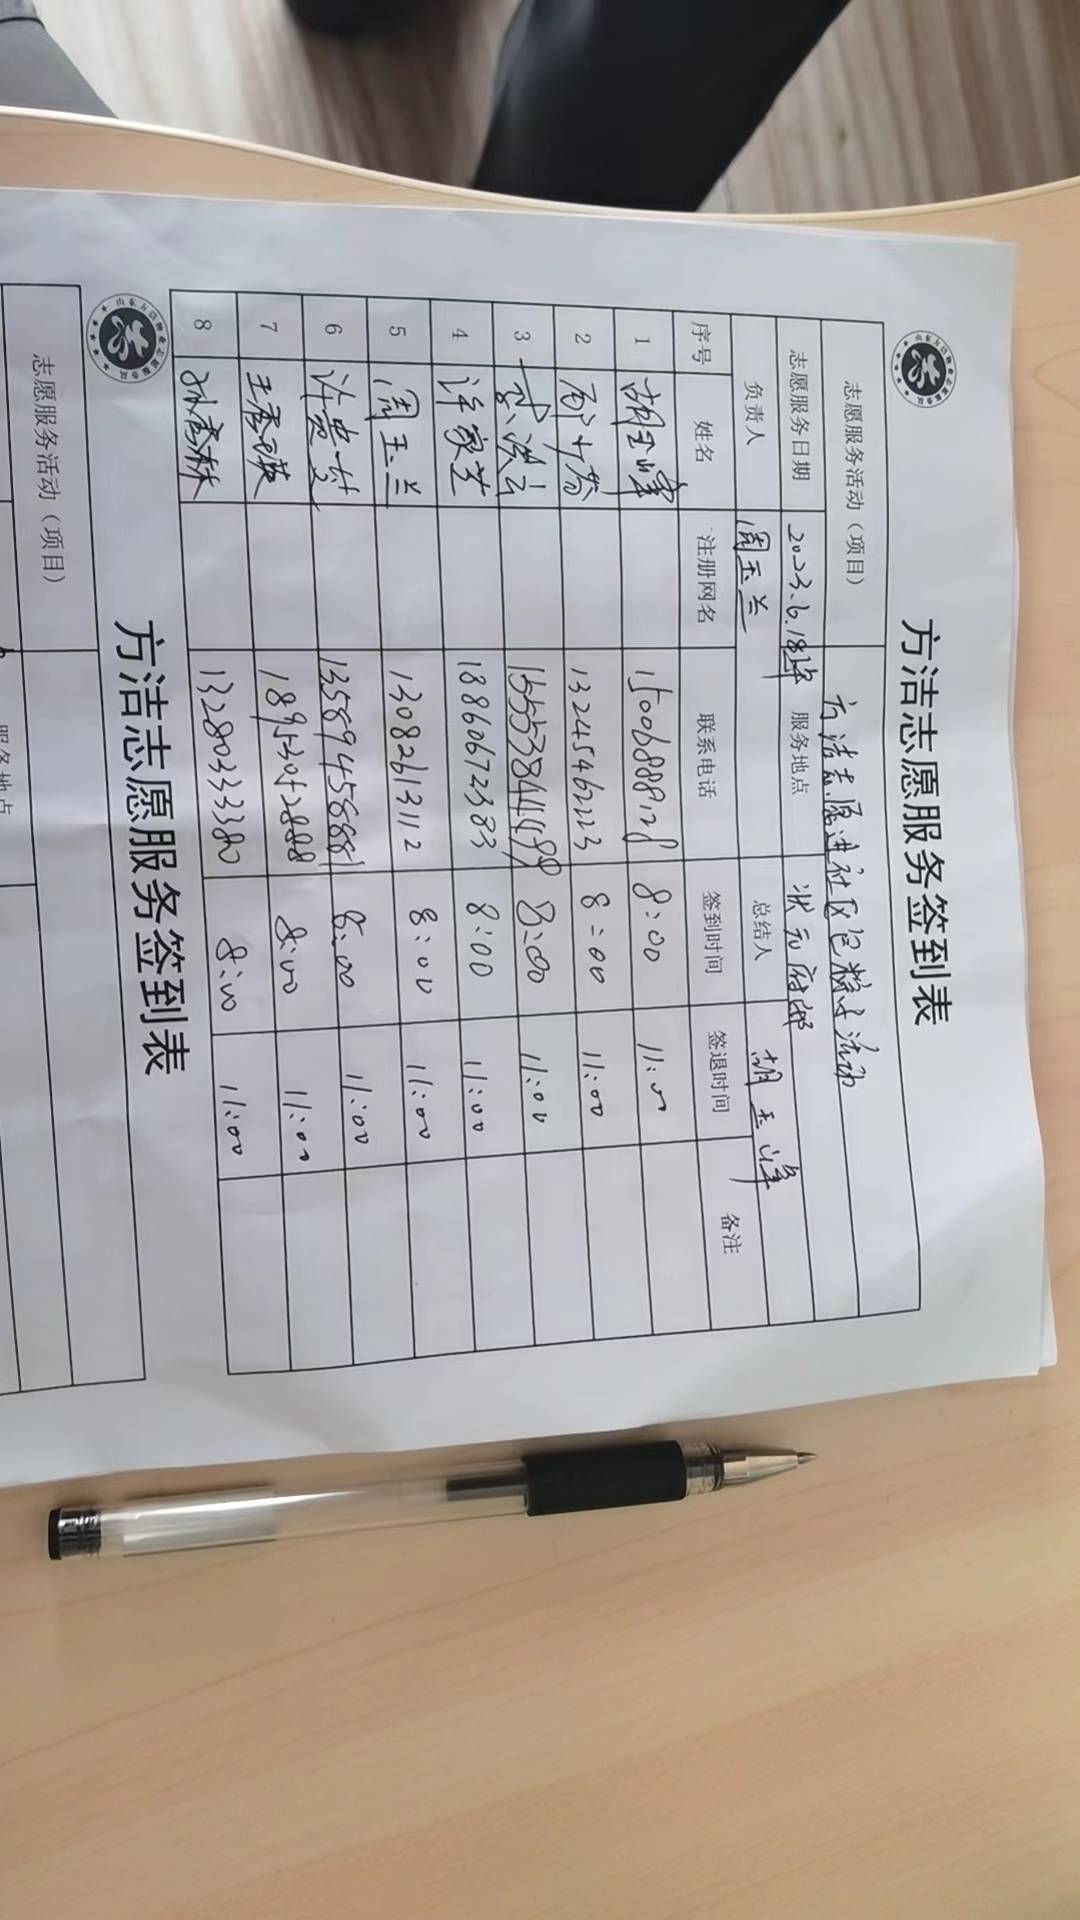 方洁志愿服务签到表
志愿服务活动（项目） 方洁志愿进社区包粽子活动
志愿服务日期 2023.6.18上午 服务地点 状元府邸
负责人 周玉兰 总结人 胡玉峰
序号 姓名 注册网名 联系电话 签到时间 签退时间 备注
1 胡玉峰 15006888128 8:00 11:00
2 13245462223 8:00 11:00
3 洪云 15553844499 8:00 11:00
4 许家芝 18860672383 8:00 11:00
5 周玉兰 13082613112 8:00 11:00
6 许贵 13589458881 8:00 11:00
7 王秀英 18953042888 8:00 11:00
8 孙秀林 13280333380 8:00 11:00
方洁志愿服务签到表
志愿服务活动（项目）
服务地点